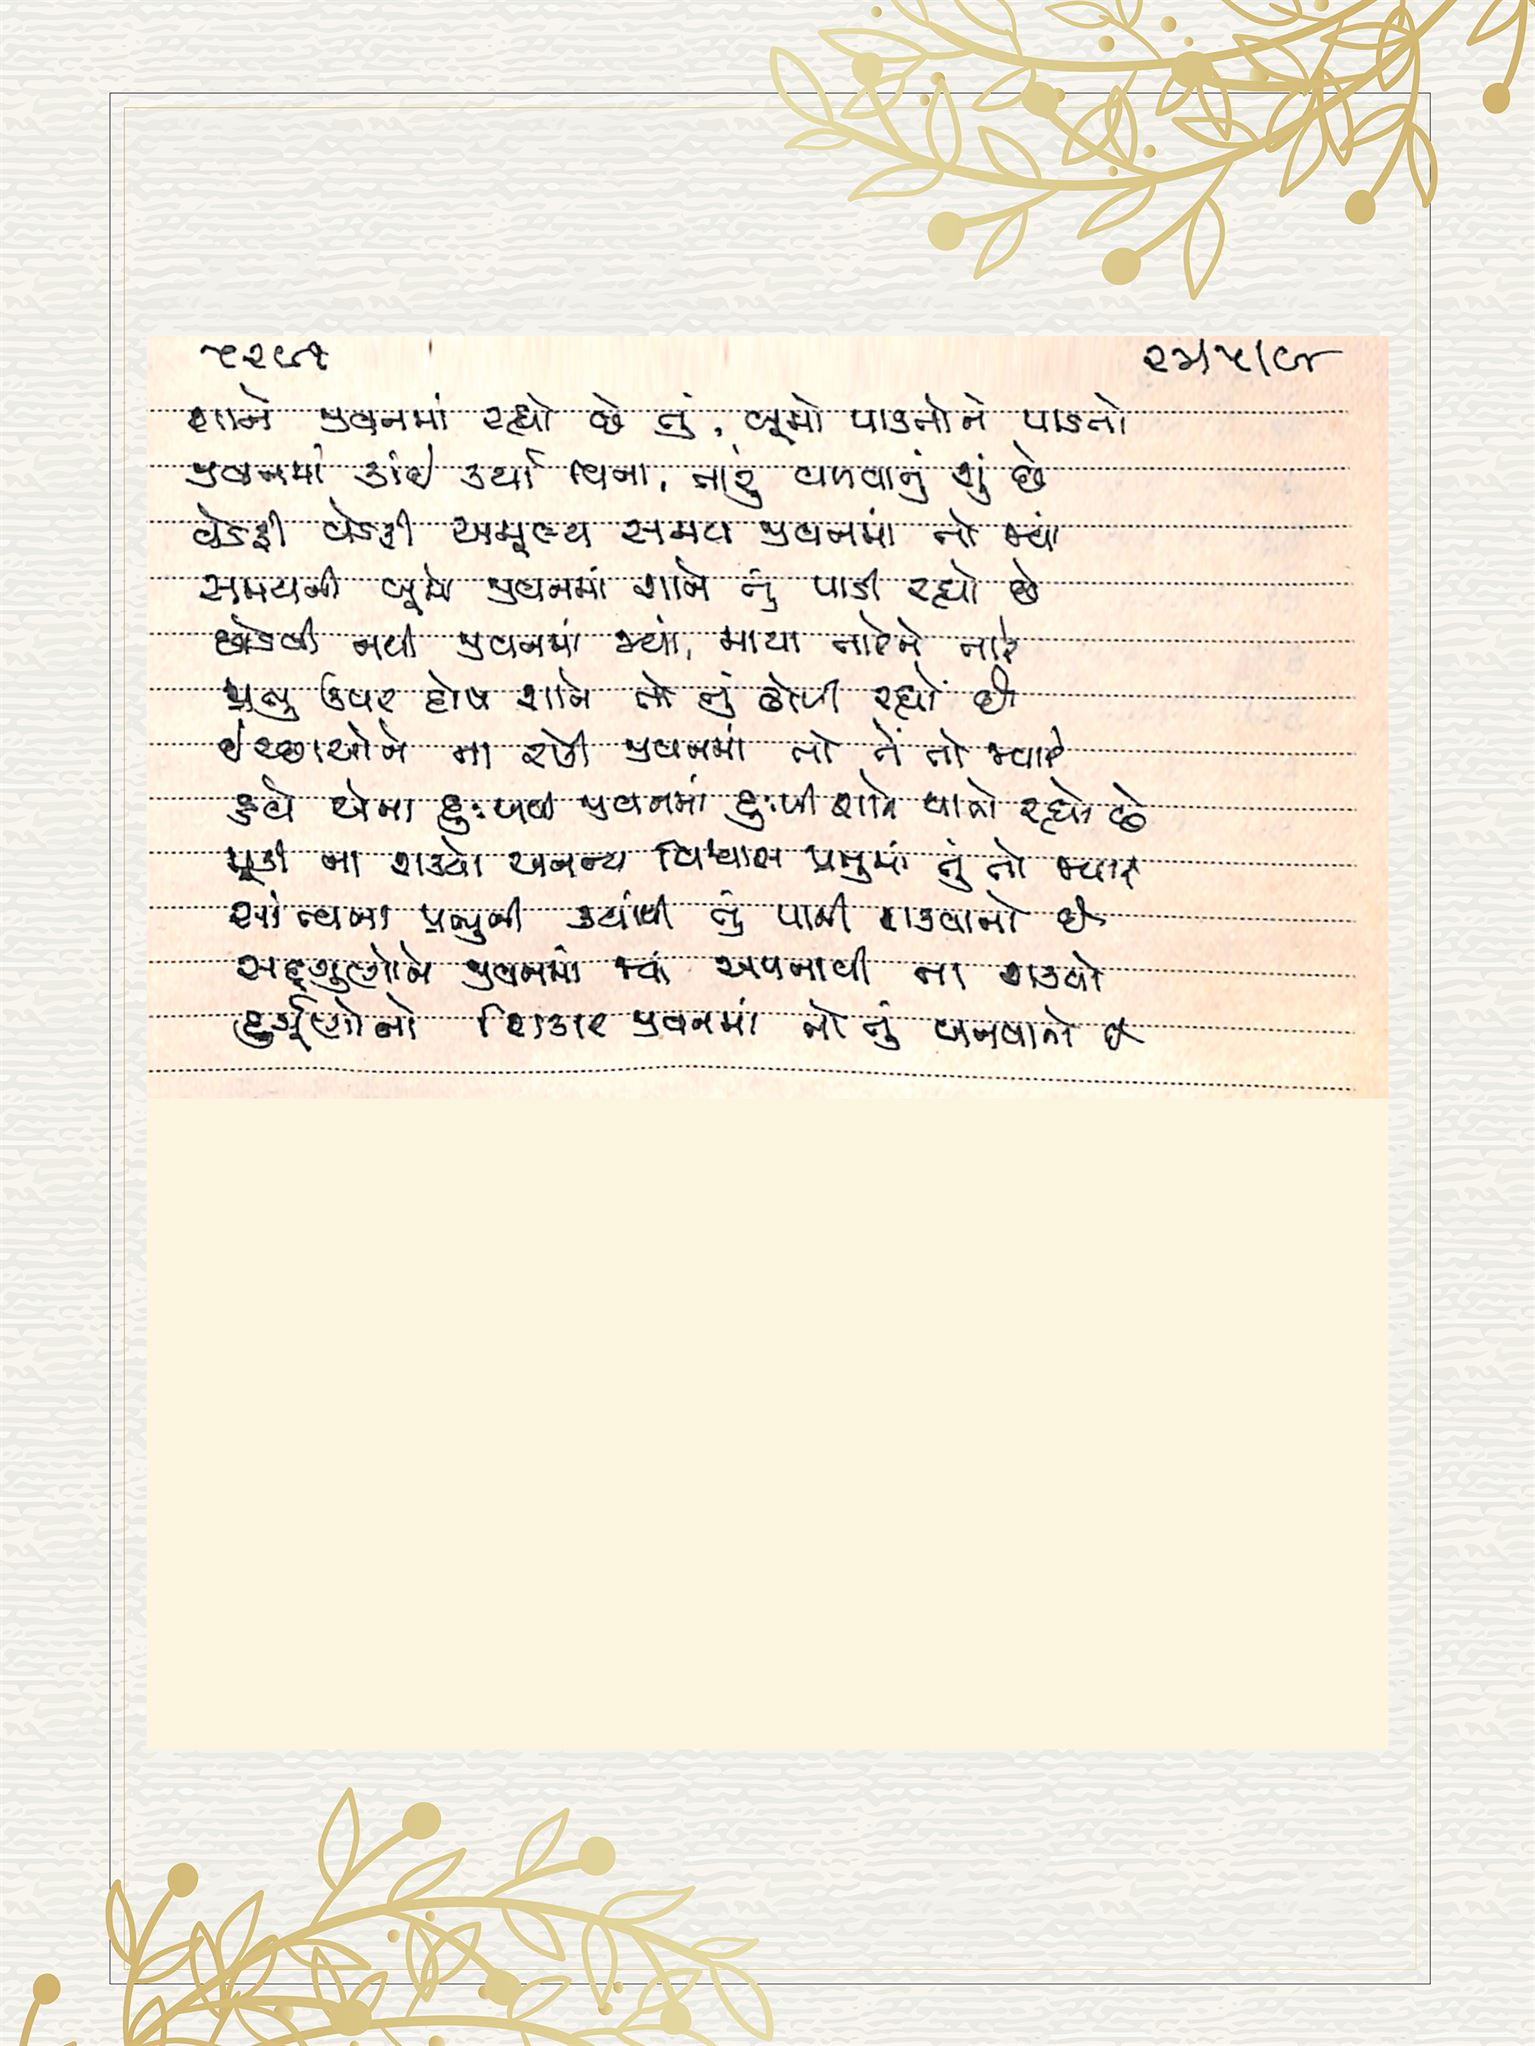 શાને જીવનમાં રહ્યો છે તું, બૂમો પાડતોને પાડતો
જીવનમાં કાંઈ કર્યા વિના, તારું વળવાનું શું છે
વેડફી વેડફી અમૂલ્ય સમય જીવનમાં તો જ્યાં
સમયની બૂમો જીવનમાં શાને તું પાડી રહ્યો છે
છોડવી નથી જીવનમાં જ્યાં, માયા તારેને તારે
પ્રભુ ઉપર દોષ શાને તો તું ઢોળી રહ્યો છે
ઈચ્છાઓને ના રોકી જીવનમાં તો તેં તો જ્યારે
હવે એના દુઃખથી જીવનમાં દુઃખી શાને થાતો રહ્યો છે
મૂકી ના શક્યો અનન્ય વિશ્વાસ પ્રભુમાં તું તો જ્યારે
સાંત્વના પ્રભુની ક્યાંથી તું પામી શકવાનો છે
સદ્ગુણોને જીવનમાં જ્યાં અપનાવી ના શક્યો
દુર્ગુણોનો શિકાર જીવનમાં તો તું બનવાનો છે